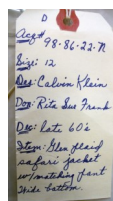 D
Acq# 98.86.22.A
Size: 12
Des: Calvin Klein
Don: Rita Sue Frank
Dec: late 60's
Item: Glen plaid
safari jacket
w/matching pant
Wide bottom.